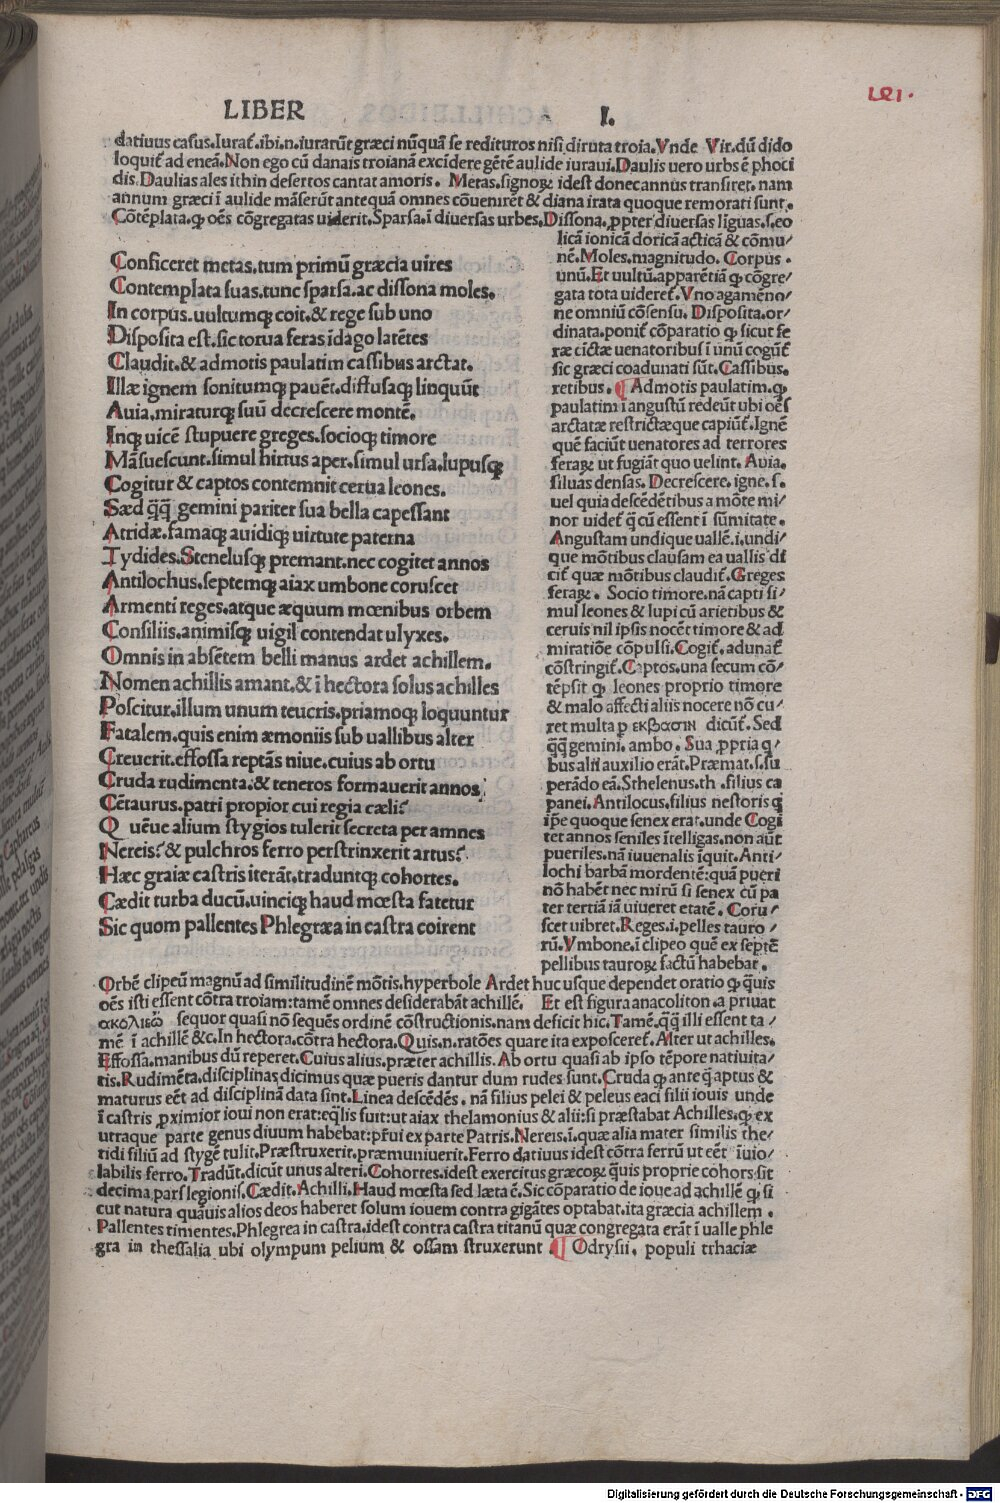 LIBER I.
LXI.
datiuus casus.Iurat̃.ibi.n.iurarũt græci nũquã se redituros nisi diruta troia.Vnde Vir.dũ dido
loquit̃ ad eneã.Non ego cũ danais troianã excidere gẽtẽ aulide iuraui.Daulis uero urbs ẽ phoci
dis.Daulias ales ithin desertos cantat amoris. Metas.signoꝝ idest donec annus transiret.nam
annum græci ĩ aulide mãserũt antequã omnes cõuenirẽt & diana irata quoque remorati sunt.
Cõtẽplata.ꝙ oẽs cõgregatas uiderit.Sparsa.ĩ diuersas urbes.Dissona.ꝓpter diuersas liguas.s.eo
licã ionicã doricã acticã & cõmu/
nẽ.Moles.magnitudo. Corpus.
unũ.Et uultũ.apparẽtiã ꝙ cõgre/
gata tota uideret̃.Vno agamẽno/
ne omniũ cõsensu. Disposita.or/
dinata.ponit̃ cõparatio ꝙ sicut fe
ræ cĩctæ uenatoribus ĩ unũ cogũt̃
sic græci coadunati sũt.Cassibus.
retibus. ¶ Admotis paulatim.ꝙ
paulatim ĩ angustũ redeũt ubi oẽs
arctatæ restrictæque capiũt̃.Ignẽ
quẽ faciũt uenatores ad terrores
feraꝝ ut fugiãt quo uelint. Auia.
siluas densas. Decrescere.igne.s.
uel quia descẽdẽtibus a mõte mi/
nor uidet̃ q̃ cũ essent ĩ sũmitate.
Angustam undique uallẽ.i.undi/
que mõtibus clausam ea uallis di
cit̃ quæ mõtibus claudit̃.Greges
feraꝝ. Socio timore.nã capti si/
mul leones & lupi cũ arietibus &
ceruis nil ipsis nocẽt timore & ad
miratiõe cõpulsi.Cogit̃.adunat̃
cõstringit̃.Captos.una secum cõ/
tẽpsit ꝙ leones proprio timore
& malo affecti aliis nocere nõ cu/
ret multa ꝑ εκβασιν dicũt̃. Sed
q̃q̃ gemini.ambo. Sua ꝓpria q̃/
bus alii auxilio erãt.Præmat.s.su
perãdo eã.Sthelenus.th.filius ca
panei.Antilocus.filius nestoris q̃
ip̃e quoque senex erat.unde Cogi
tet annos seniles ĩtelligas.non aũt
pueriles.nã iuuenalis iquit.Anti/
lochi barbã mordentẽ:quã pueri
nõ habẽt nec mirũ si senex cũ pa
ter tertiã iã uiueret etatẽ. Coru/
scet uibret.Reges.i.pelles tauro/
rũ.Vmbone.ĩ clipeo quẽ ex septẽ
pellibus tauroꝝ factũ habebat.
Conficeret metas.tum primũ græcia uires
Contemplata suas.tunc sparsa.ac dissona moles.
In corpus.uultumqꝫ coit.& rege sub uno
Disposita est.sic torua feras ĩdago latẽtes
Claudit.& admotis paulatim cassibus arctat.
Illæ ignem sonitumqꝫ pauẽt.diffusaqꝫ linquũt
Auia.miraturqꝫ suũ decrescere montẽ.
Inqꝫ uicẽ stupuere greges.socioqꝫ timore
Mãsuescunt.simul hirtus aper.simul ursa.lupusqꝫ
Cogitur & captos contemnit cerua leones.
Sæd q̃q̃ gemini pariter sua bella capessant
Atridæ.famaqꝫ auidiqꝫ uirtute paterna
Tydides.Stenelusqꝫ premant.nec cogitet annos
Antilochus.septemqꝫ aiax umbone coruscet
Armenti reges.atque æquum mœnibus orbem
Consiliis.animisqꝫ uigil contendat ulyxes.
Omnis in absẽtem belli manus ardet achillem.
Nomen achillis amant.& ĩ hectora solus achilles
Poscitur.illum unum teucris.priamoqꝫ loquuntur
Fatalem.quis enim æmoniis sub uallibus alter
Creuerit.effossa reptãs niue.cuius ab ortu
Cruda rudimenta.& teneros formauerit annos
Cẽtaurus.patri propior cui regia cæli?
Quẽue alium stygios tulerit secreta per amnes
Nereis? & pulchros ferro perstrinxerit artus?
Hæc graiæ castris iterãt.traduntqꝫ cohortes.
Cædit turba ducũ.uinciqꝫ haud mœsta fatetur
Sic quom pallentes Phlegræa in castra coirent
Orbẽ clipeũ magnũ ad similitudinẽ mõtis.hyperbole Ardet huc usque dependet oratio ꝙ q̃uis
oẽs isti essent cõtra troiam:tamẽ omnes desiderabãt achillẽ. Et est figura anacoliton.a priuat
ακολιεω̃ sequor quasi nõ sequẽs ordinẽ cõstructionis.nam deficit hic.Tamẽ.q̃q̃ illi essent ta/
mẽ ĩ achillẽ &c.In hectora.cõtra hectora.Quis.n.ratões quare ita exposceret̃.Alter ut achilles.
Effossa.manibus dũ reperet.Cuius alius.præter achillis.Ab ortu quasi ab ipso tẽpore natiuita/
tis.Rudimẽta.disciplinas dicimus quæ pueris dantur dum rudes sunt.Cruda ꝙ ante q̃ aptus &
maturus eẽt ad disciplinã data sint.Linea descẽdẽs. nã filius pelei & peleus eaci filii iouis unde
ĩ castris ꝓximior ioui non erat:eq̃lis fuit:ut aiax thelamonius & alii:si præstabat Achilles.ꝙ ex
utraque parte genus diuum habebat:pr̃ui ex parte Patris.Nereis.ĩ.quæ alia mater similis the/
tidi filiũ ad stygẽ tulit.Præstruxerit.præmuniuerit.Ferro datiuus idest cõtra ferrũ ut eẽt ĩuio/
labilis ferro.Tradũt.dicũt unus alteri.Cohortes.idest exercitus græcoꝝ q̃uis proprie cohors sit
decima pars legionis.Cædit.Achilli.Haud mœsta sed læta ẽ.Sic cõparatio de ioue ad achillẽ ꝙ si
cut natura quãuis alios deos haberet solum iouem contra gigãtes optabat.ita græcia achillem.
Pallentes timentes.Phlegrea in castra.idest contra castra titanũ quæ congregata erãt ĩ ualle phle
gra in thessalia ubi olympum pelium & ossam struxerunt ¶ Odrysii. populi trhaciæ
Digitalisierung gefördert durch die Deutsche Forschungsgemeinschaft - DFG